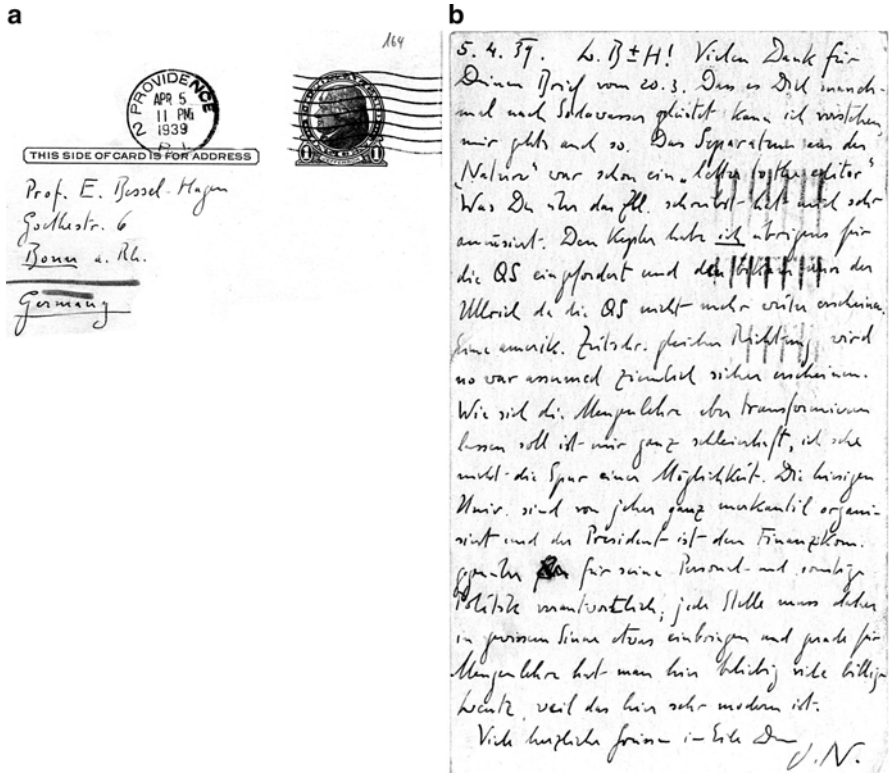 a
164
PROVIDENCE
APR 5
11 PM
1939
2 R.I.
THIS SIDE OF CARD IS FOR ADDRESS
Prof. E. Bessel-Hagen
Goethestr. 6
Bonn a. Rh.
Germany
b
5. 4. 39. L. B±H! Vielen Dank für
Deinen Brief vom 20.3. Dass es Dich manch-
mal nach Sodawasser gelüstet kann ich verstehen,
mir gehts auch so. Das Separatum aus der
"Nature" war schon ein "letter to the editor"
Was Du über das Zbl. schreibst hat mich sehr
amüsiert. Den Kepler habe ich übrigens für
die QS eingefordert und der
Ullrich da die QS nicht mehr weiter erscheinen.
Eine amerik. Zeitschr. gleicher Richtung wird
ziemlich sicher erscheinen.
Wie sich die Mengenlehre aber transformieren
lassen soll ist mir ganz schleierhaft, ich sehe
nicht die Spur einer Möglichkeit. Die hiesigen
Univ. sind von jeher ganz merkantil organi-
siert und der President ist dem Finanzkom.
gegenüber für seine Personal- und sonstige
Politik verantwortlich, jede Stelle muss daher
in gewissem Sinne etwas einbringen und gerade für
Mengenlehre hat man hier beliebig viele billige
Leute, weil das hier sehr modern ist.
Viele herzliche Grüsse in Eile Dein
O.N.